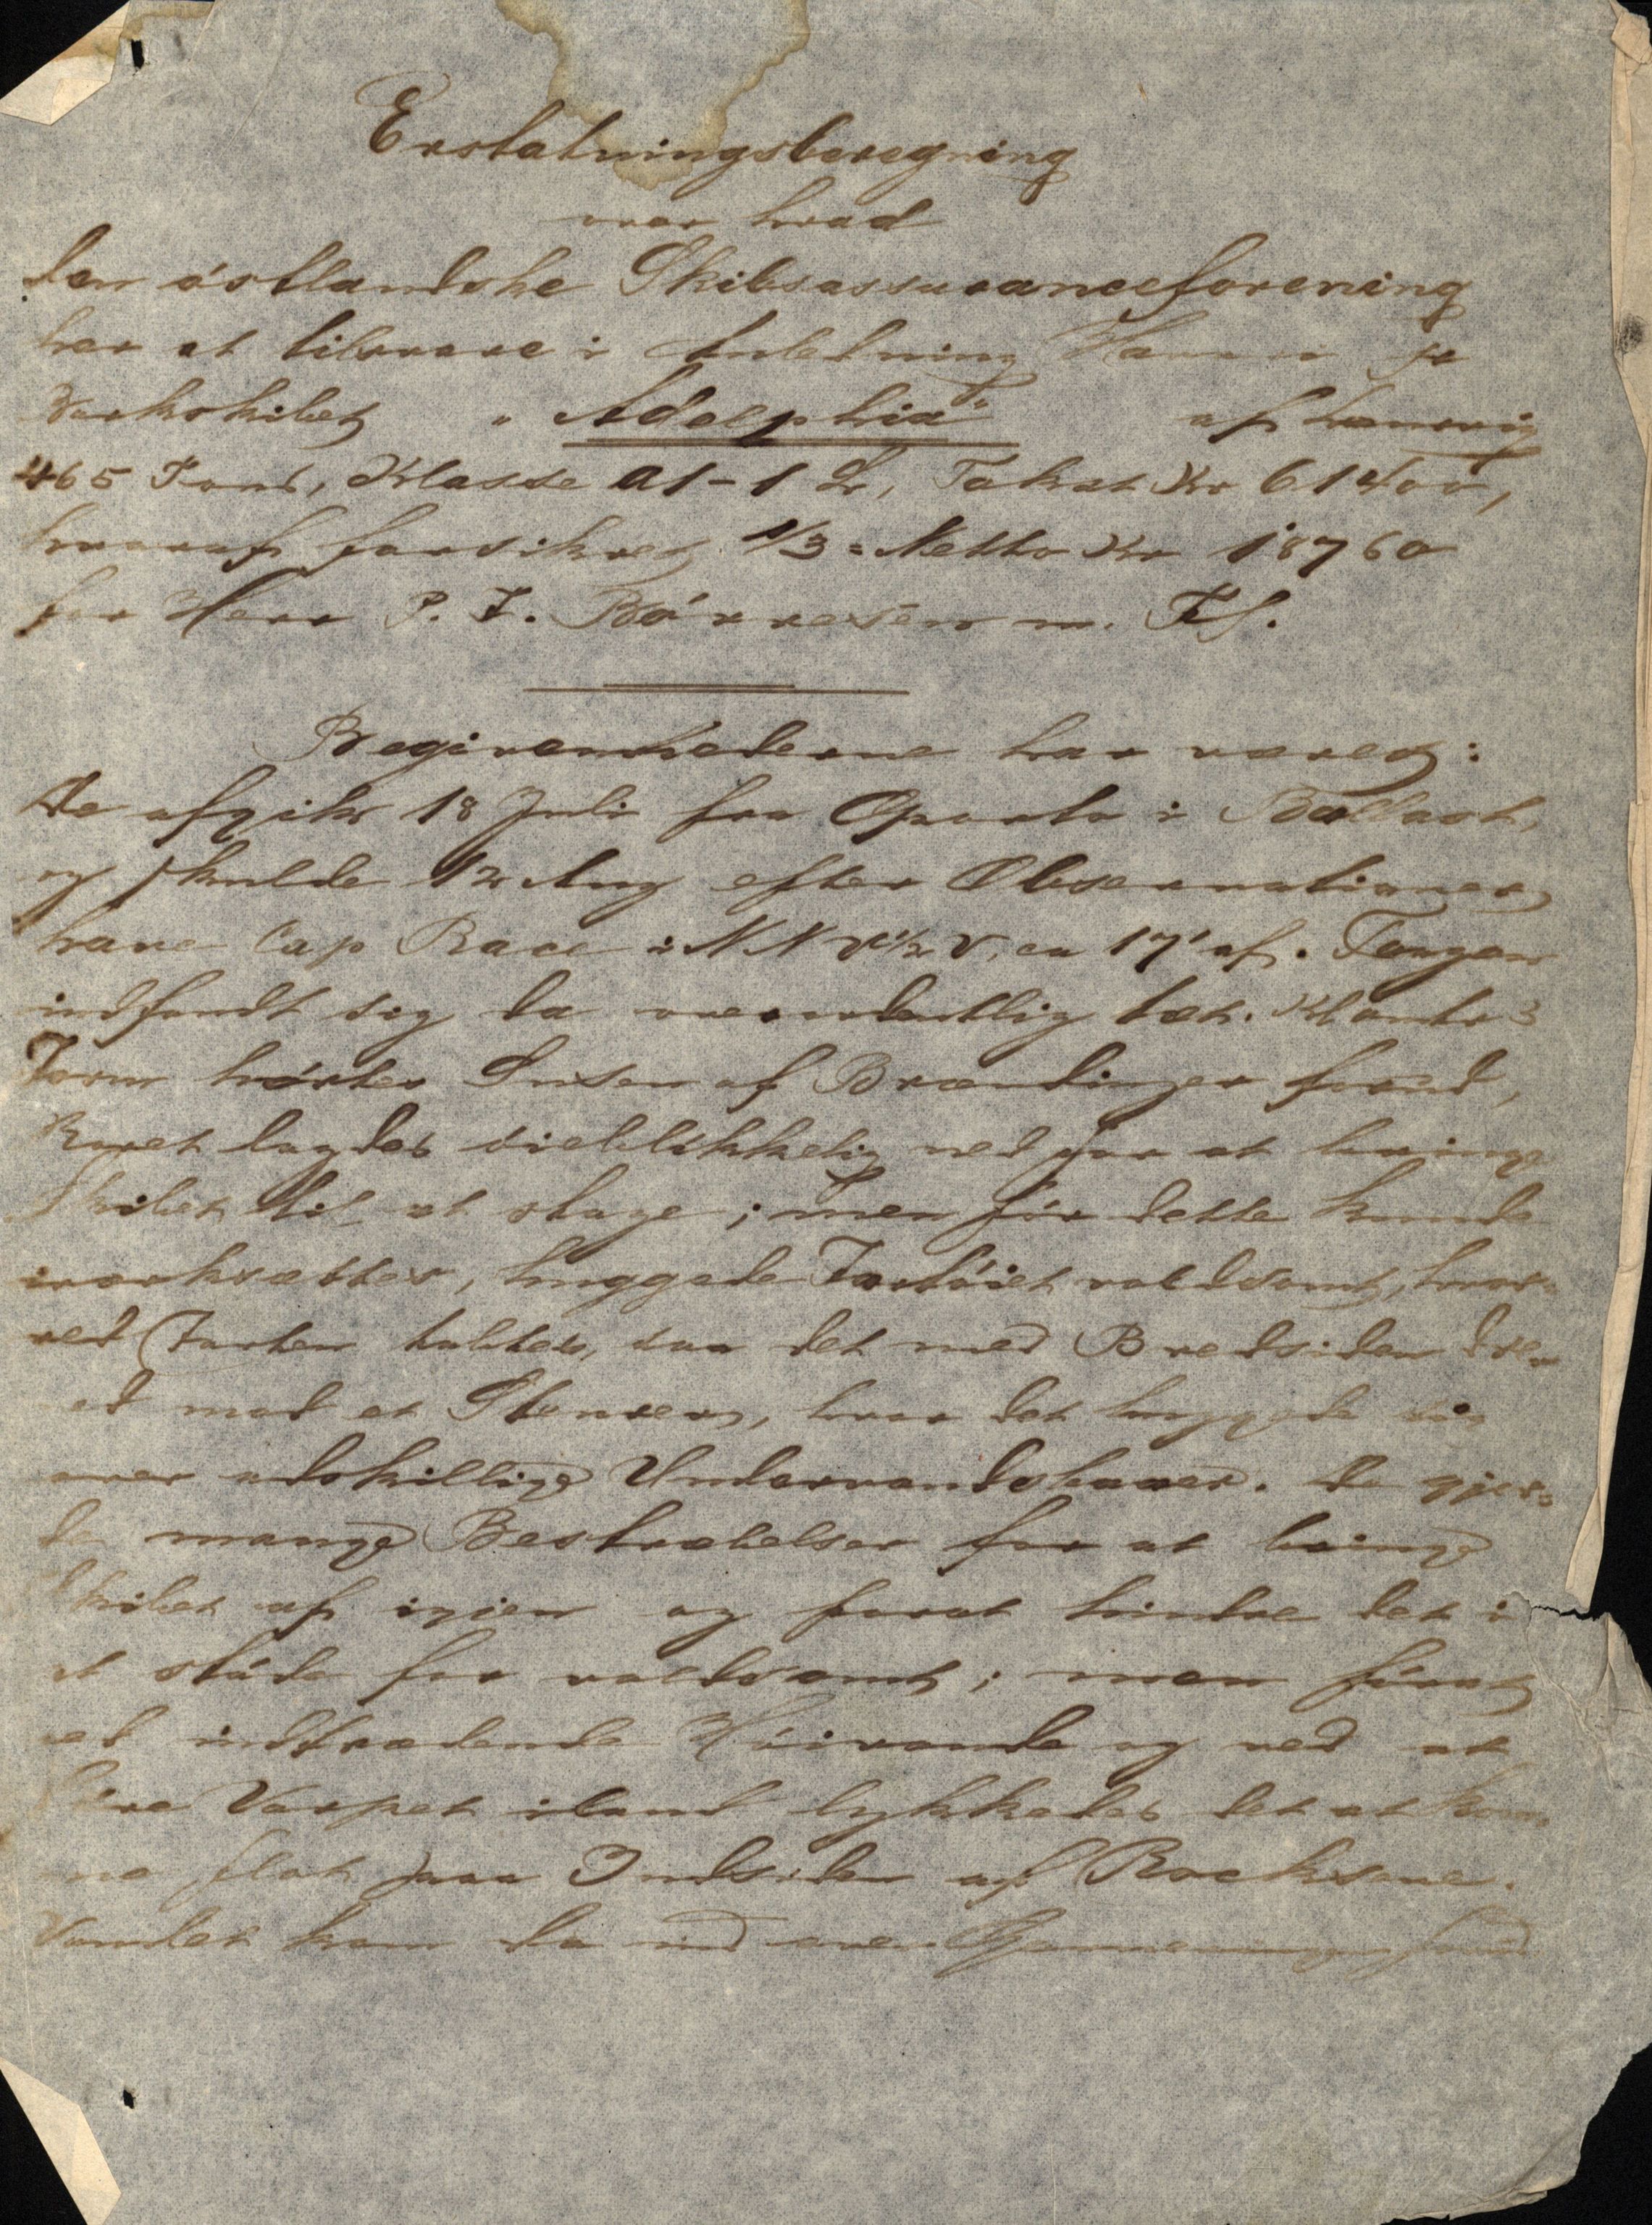 Erstatningsberegning
over hvad
den østlandske Skibsassuranceforening
har at tilsvare i Anledning Havari
Barkskibet "Adelphia" af Laurvig
465 Tons, Klasse A1-1 L, Takst Kr 61400,
hvoraf forsikret 1/3 = Netto Kr 18760
for Herr P. I. Børresen m. Fl.
Begivenhederne har været:
De afgik 18 Juli fra Oporto i Ballast,
og skulde 12 Aug efter Observationer
have Cap Race i NNV½V, ca 17' af. Taagen
indfandt sig da overordentlig tæt. Kl omtr 3
Form hørtes Susen af Brændinger forud,
Roret lagdes øieblikkelig ned for at bringe
Skibet til at stage; men før dette kunde
iværksættes, huggede Fartøiet voldsomt, hvor-
ved Farten tabtes, saa det med Bredsiden drev
ed mod et Stenrev, hvor det huggede sig
over adskillige Undervandsskjær. De gjor-
de mange Bestræbelser for at bringe
Skibet af igjen og forat hindre det i
at støde for voldsomt; men først
ved indtrædende Høivande og ved at
føre Varpet iland lykkedes det at kom-
me flot paa Indsiden af Rocksene.
Vandet kom da ind over